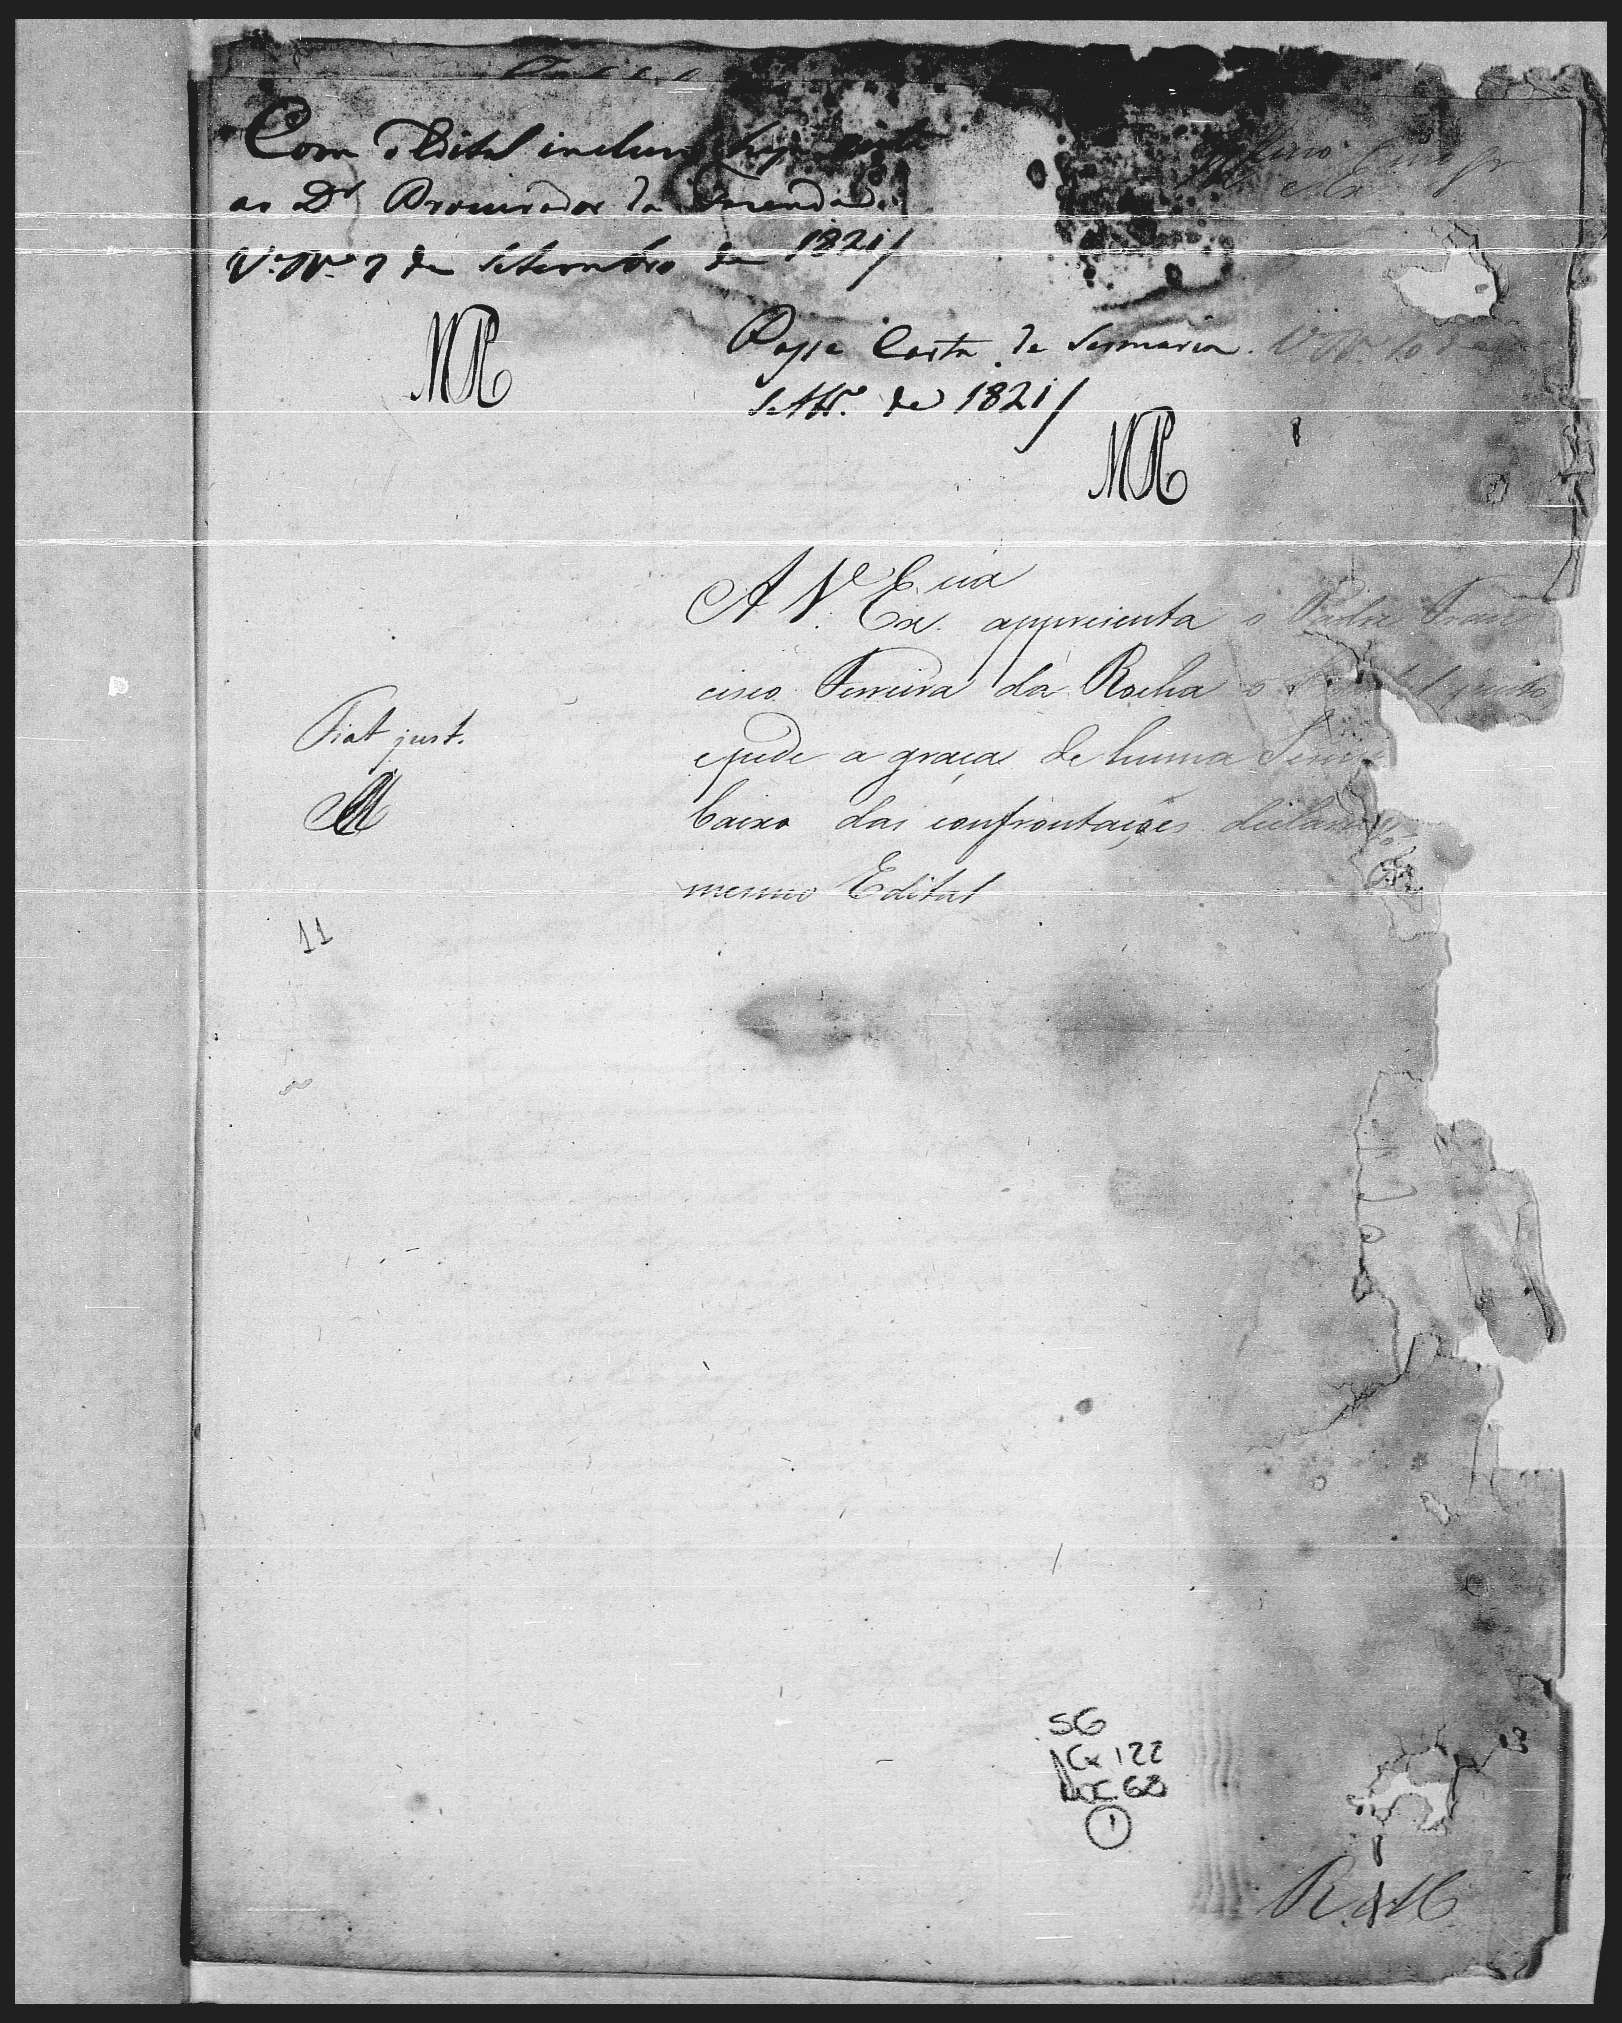 Com o Edital incluso
ao Dr Procurador da Fazenda.
Va. Ra. 7 de Setembro de 1821/
MR
Passe Carta de Sesmaria. V R 10 de
Settbro. de 1821/
MR
A V. Excia
Ex. appresenta o Padre Fran
cisco Ferreira da Rocha o Edital junto
e pede a graça de huma Sesm
baixo das confrontações declara
mesmo Edital
Fiat just.
11
SG
Cx 122
Doc 68
1
R. M.